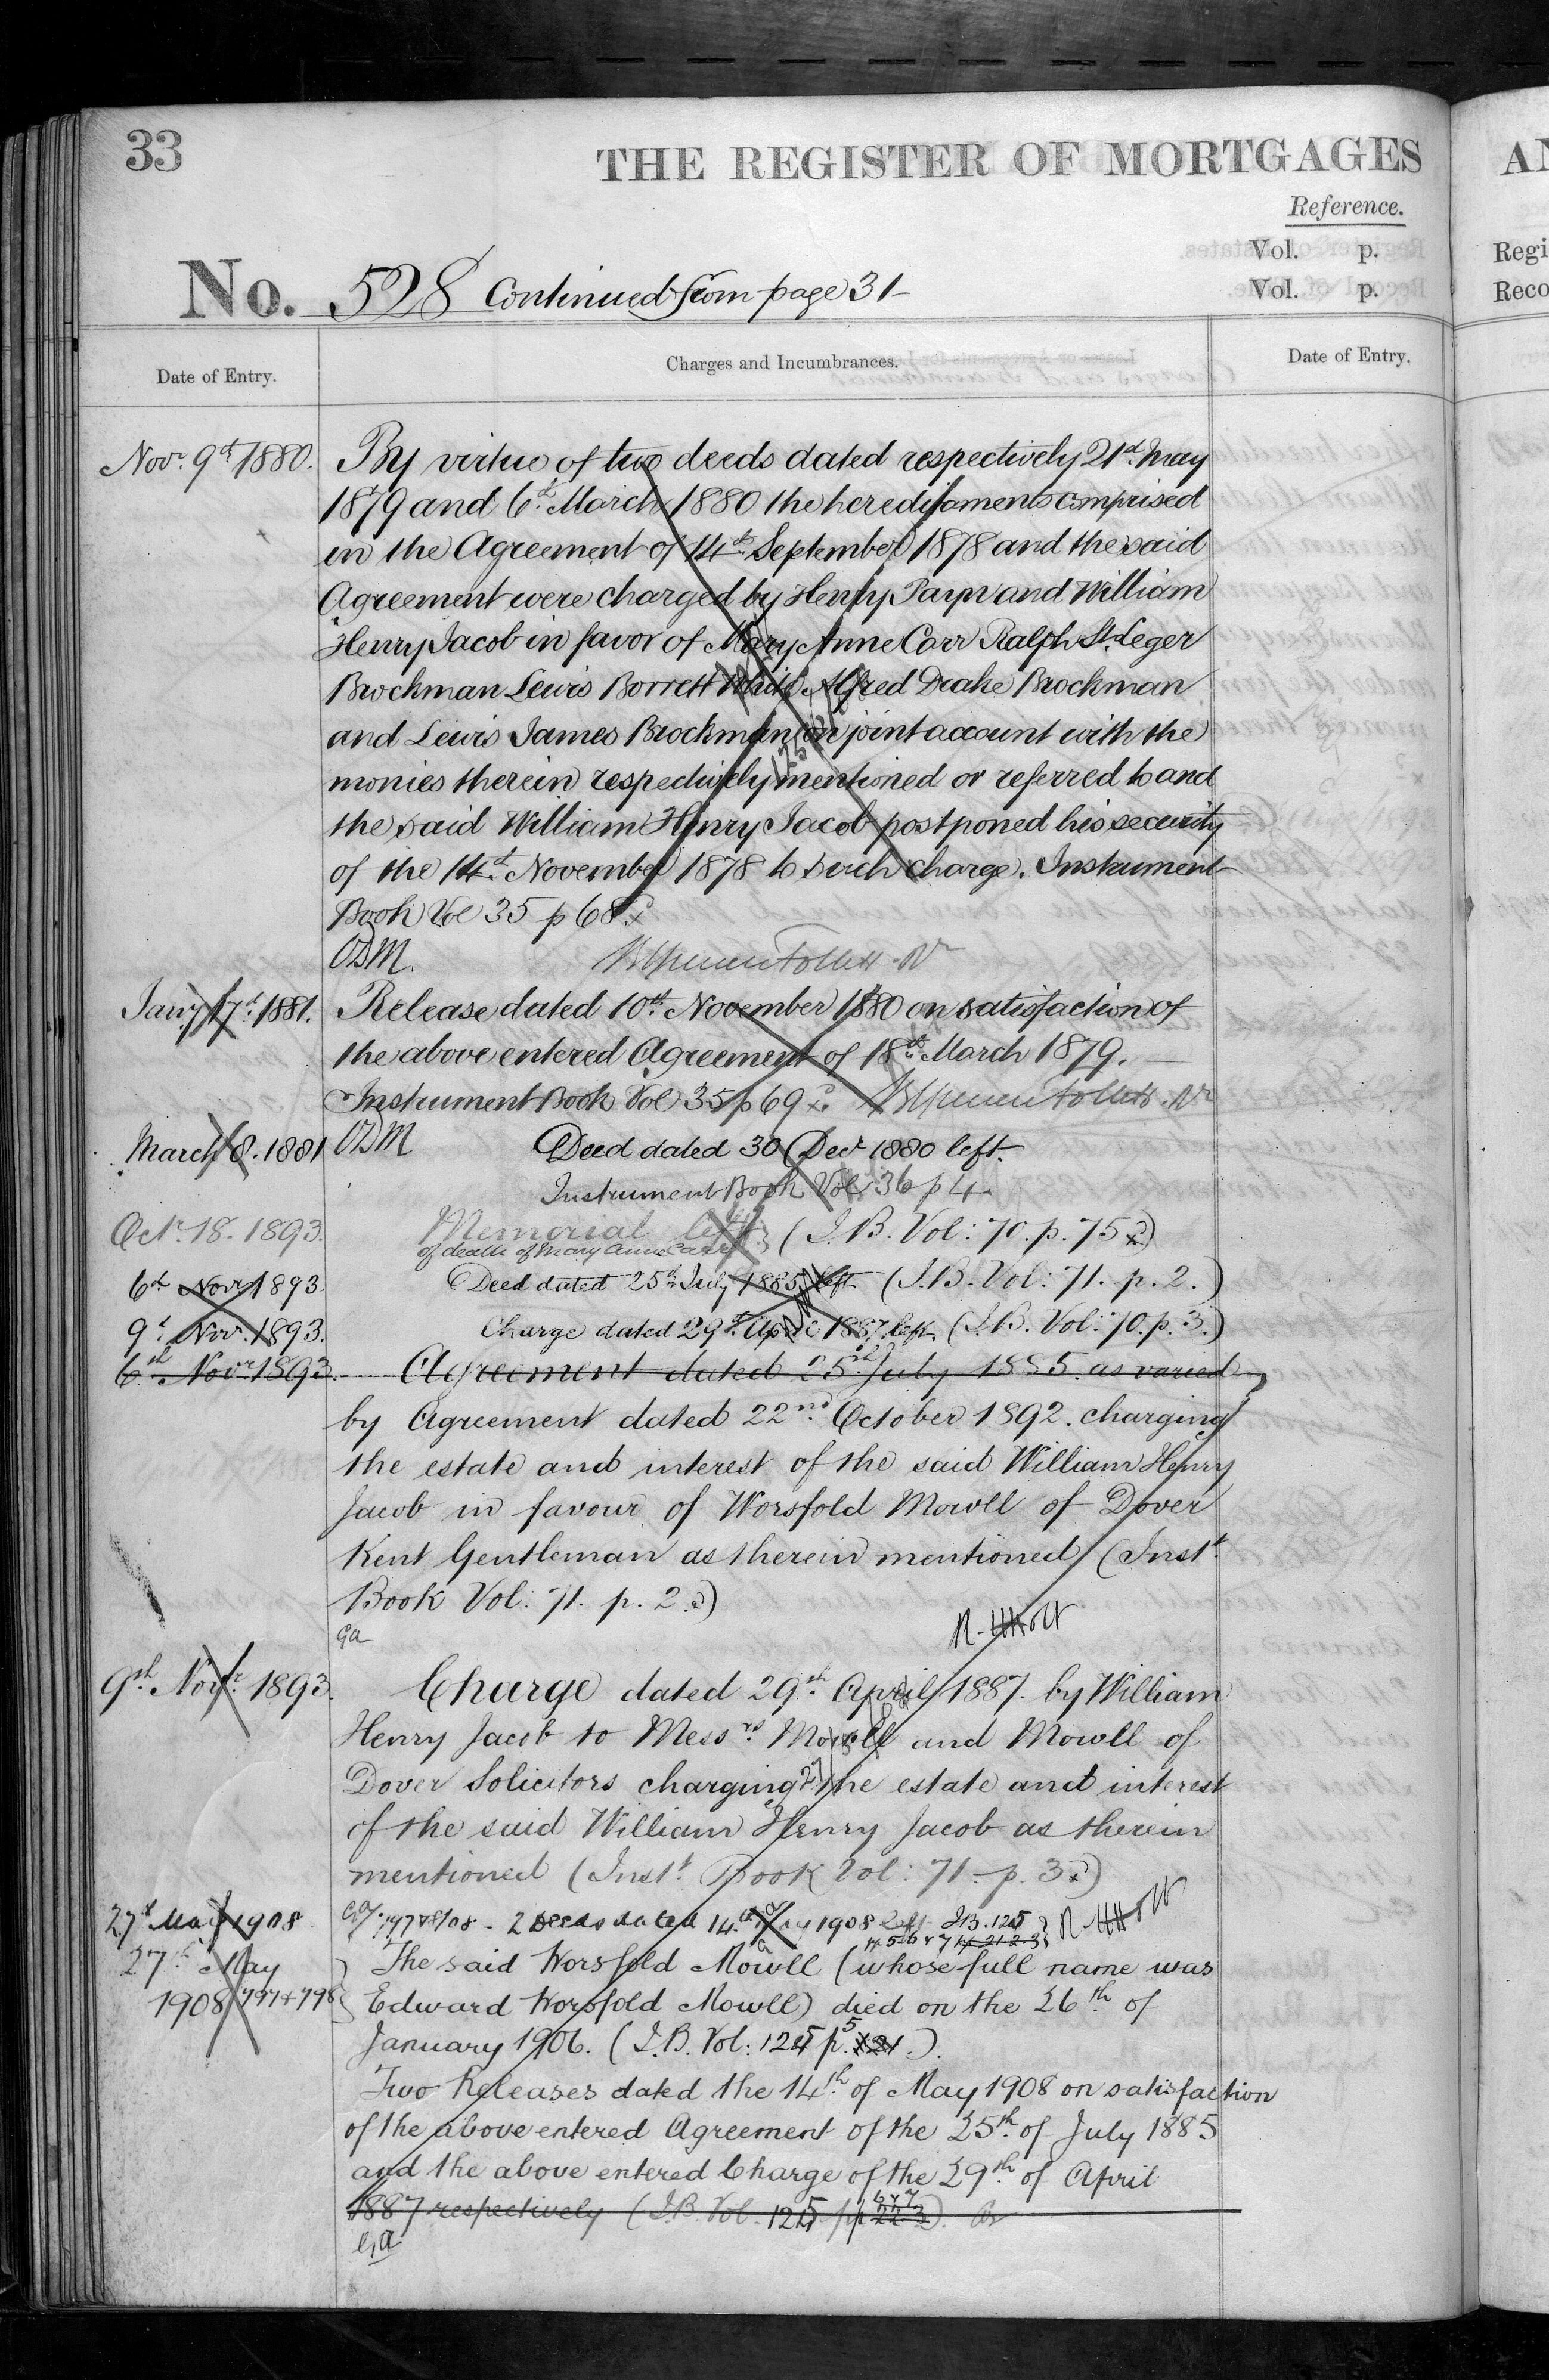 33
THE REGISTER OF MORTGAGES
AN
Reference.
Vol. p.
Vol. p.
Regi
Reco
No. 528 Continued from page 31
Date of Entry.
Charges and Incumbrances.
Date of Entry.
Novr. 9th 1880. By virtue of two deeds dated respectively 21st. May
1879 and 6th. March 1880 the hereditaments comprised
in the Agreement of 14th September 1878 and the said
Agreement were charged by Henry Payn and William
Henry Jacob in favor of Mary Anne Carr Ralph St. Leger
Brockman Lewis Borrett White Alfred Drake Brockman
and Lewis James Brockman on joint account with the
monies therein respectively mentioned or referred to and
the said William Henry Jacob postponed his security
of the 14th. November 1878 to such charge. Instrument
Book Vol 35 p 68
Jany 17th. 1881. Release dated 10th. November 1880 on satisfaction of
the above entered Agreement of 18th. March 1879.
Instrument Book Vol 35 p 69
March 8. 1881 Deed dated 30 Decr 1880 left.
Instrument Book Vol. 36 p 4
Octr. 18. 1893. Memorial left (I.B. Vol: 70. p. 75)
of death of Mary Anne Carr
6th Novr 1893. Deed dated 25th July 1885 left (I.B. Vol: 71. p. 2.)
9th. Novr. 1893. Charge dated 29th. April 1887 left. (I.B. Vol: 70. p. 3.)
6th Novr 1893. Agreement dated 25th. July 1885. as varied
by Agreement dated 22nd. October 1892. charging
the estate and interest of the said William Henry
Jacob in favour of Worsfold Mowll of Dover
Kent Gentleman as therein mentioned (Instt.
Book Vol: 71. p. 2)
9th. Novr. 1893. Charge dated 29th. April 1887. by William
Henry Jacob to Messrs. Mowll and Mowll of
Dover Solicitors charging the estate and interest
of the said William Henry Jacob as therein
mentioned (Instt. Book Vol: 71. p. 3)
27th May 1908 2 Deeds dated 14th May 1908 Left I.B. 125
27th. May The said Worsfold Mowll (whose full name was
1908 797+798 Edward Worsfold Mowll) died on the 26th. of
January 1906. (I.B. Vol: 125 p. 5 121.).
Two Releases dated the 14th. of May 1908 on satisfaction
of the above entered Agreement of the 25th. of July 1885
and the above entered Charge of the 29th. of April
6 & 7
1887 respectively (I.B. Vol. 125 pp 22.3).